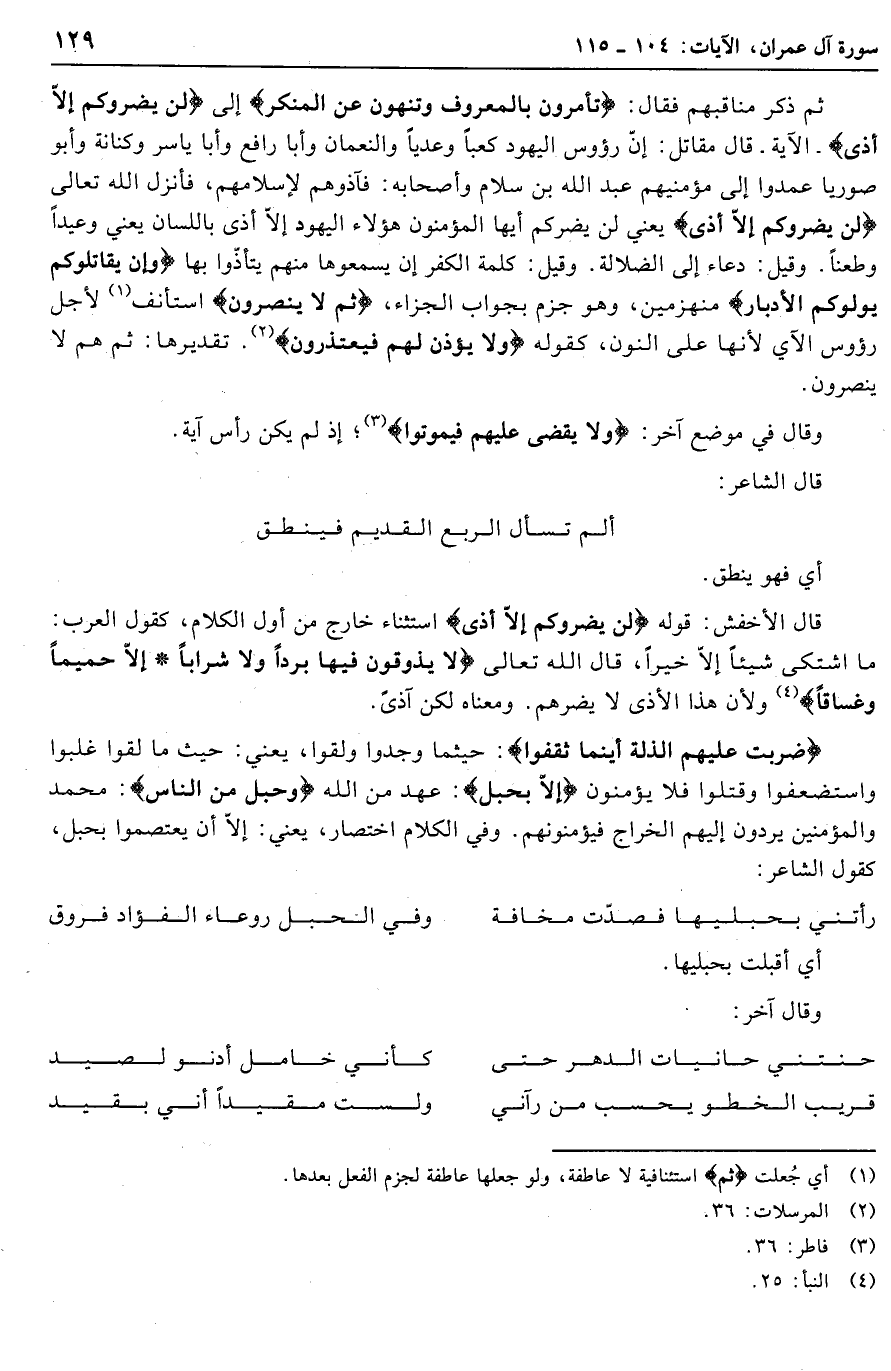 سورة آل عمران، الآيات: ١٠٤ ـ ١١٥ ١٢٩
ثم ذكر مناقبهم فقال: ﴿تأمرون بالمعروف وتنهون عن المنكر﴾ إلى ﴿لن يضروكم إلاّ
أذى﴾ ـ الآية ـ قال مقاتل: إنّ رؤوس اليهود كعباً وعدياً والنعمان وأبا رافع وأبا ياسر وكنانة وأبو
صوريا عمدوا إلى مؤمنيهم عبد الله بن سلام وأصحابه: فآذوهم لإسلامهم، فأنزل الله تعالى
﴿لن يضروكم إلاّ أذى﴾ يعني لن يضركم أيها المؤمنون هؤلاء اليهود إلاّ أذى باللسان يعني وعيداً
وطعناً. وقيل: دعاء إلى الضلالة. وقيل: كلمة الكفر إن يسمعوها منهم يتأذّوا بها ﴿وإن يقاتلوكم
يولوكم الأدبار﴾ منهزمين، وهو جزم بجواب الجزاء، ﴿ثم لا ينصرون﴾ استأنف(١) لأجل
رؤوس الآي لأنها على النون، كقوله ﴿ولا يؤذن لهم فيعتذرون﴾(٢). تقديرها: ثم هم لا
ينصرون.
وقال في موضع آخر: ﴿ولا يقضى عليهم فيموتوا﴾(٣)؛ إذ لم يكن رأس آية.
قال الشاعر:
ألم تسأل الربع القديم فينطق
أي فهو ينطق.
قال الأخفش: قوله ﴿لن يضروكم إلاّ أذى﴾ استثناء خارج من أول الكلام، كقول العرب:
ما اشتكى شيئاً إلاّ خيراً، قال الله تعالى ﴿لا يذوقون فيها برداً ولا شراباً * إلاّ حميماً
وغساقاً﴾(٤) ولأن هذا الأذى لا يضرهم. ومعناه لكن آذىً.
﴿ضربت عليهم الذلة أينما ثقفوا﴾: حيثما وجدوا ولقوا، يعني: حيث ما لقوا غلبوا
واستضعفوا وقتلوا فلا يؤمنون ﴿إلاّ بحبل﴾: عهد من الله ﴿وحبل من الناس﴾: محمد
والمؤمنين يردون إليهم الخراج فيؤمنونهم. وفي الكلام اختصار، يعني: إلاّ أن يعتصموا بحبل،
كقول الشاعر:
رأتني بحبليها فصدّت مخافة وفي الحبل روعاء الفؤاد فروق
أي أقبلت بحبليها.
وقال آخر:
حنتني حانيات الدهر حتى كأني خامل أدنو لصيد
قريب الخطو يحسب من رآني ولست مقيداً أني بقيد
(١) أي جُعلت ﴿ثم﴾ استئنافية لا عاطفة، ولو جعلها عاطفة لجزم الفعل بعدها.
(٢) المرسلات: ٣٦.
(٣) فاطر: ٣٦.
(٤) النبأ: ٢٥.